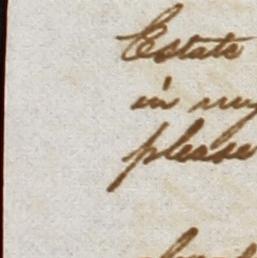 Estate
in my
please